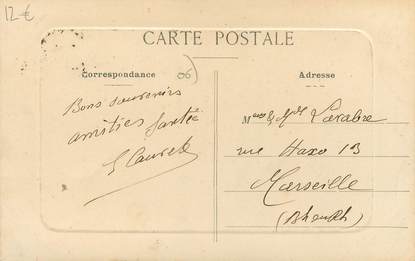 12 €
CARTE POSTALE
Correspondance
96
Adresse
Bons souvenirs
amitiés Santé
Mme & Mlle
rue Haxo 13
Marseille
(Bh du Rh)